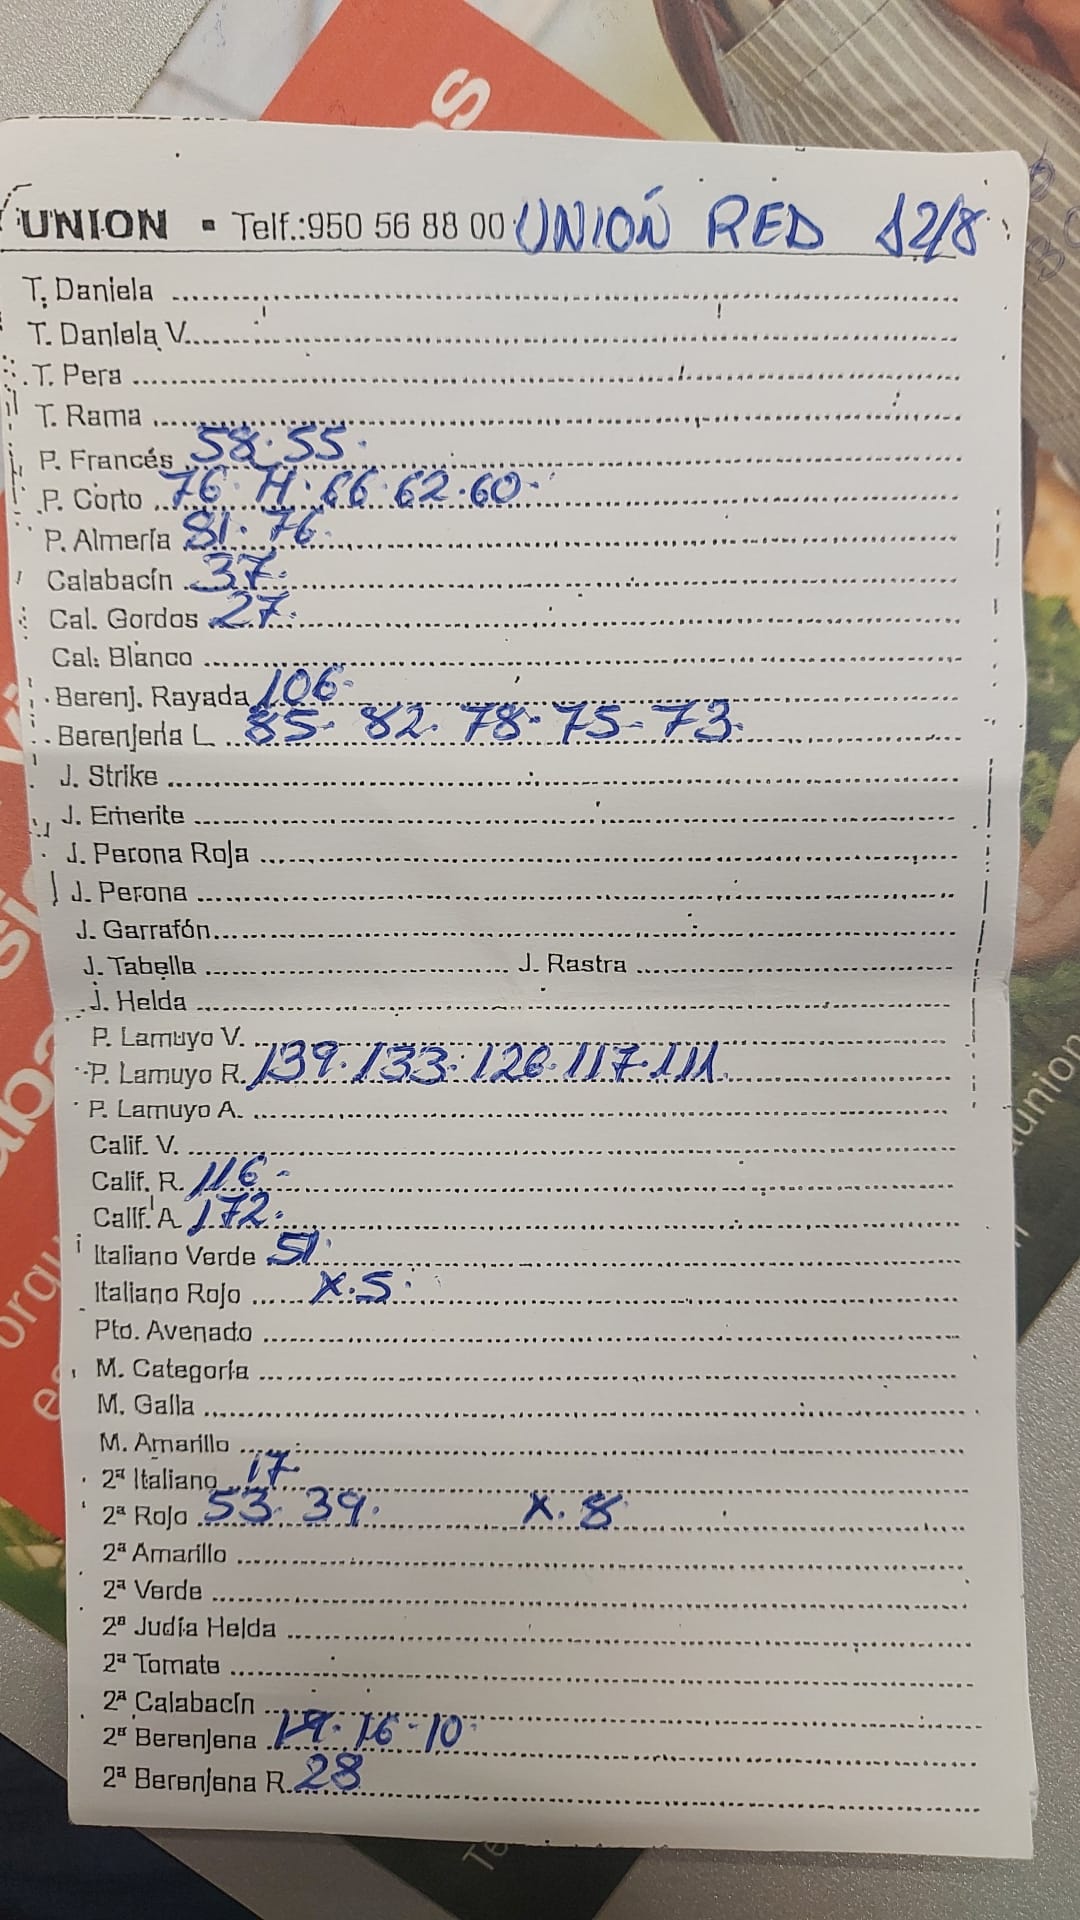 UNION ▪ Telf.:950 56 88 00 UNIÓN RED 12/8
T. Daniela
T. Daniela V.
T. Pera
T. Rama
P. Francés 58. 55.
P. Corto 76. 71. 66. 62. 60.
P. Almería 81. 76.
Calabacín 37.
Cal. Gordos 27.
Cal. Blanco
Berenj. Rayada 106.
Berenjena L. 85. 82. 78. 75. 73.
J. Strike
J. Emerite
J. Perona Roja
J. Perona
J. Garrafón
J. Tabella J. Rastra
J. Helda
P. Lamuyo V.
P. Lamuyo R. 139. 133. 126. 117. 111.
P. Lamuyo A.
Calif. V.
Calif. R. 116.
Calif. A. 172.
Italiano Verde 51.
Italiano Rojo X.5.
Pto. Avenado
M. Categoría
M. Galla
M. Amarillo
2ª Italiano 17
2ª Rojo 53. 39. X. 8
2ª Amarillo
2ª Verde
2ª Judía Helda
2ª Tomate
2ª Calabacín
2ª Berenjena 19. 16. 10.
2ª Berenjena R. 28